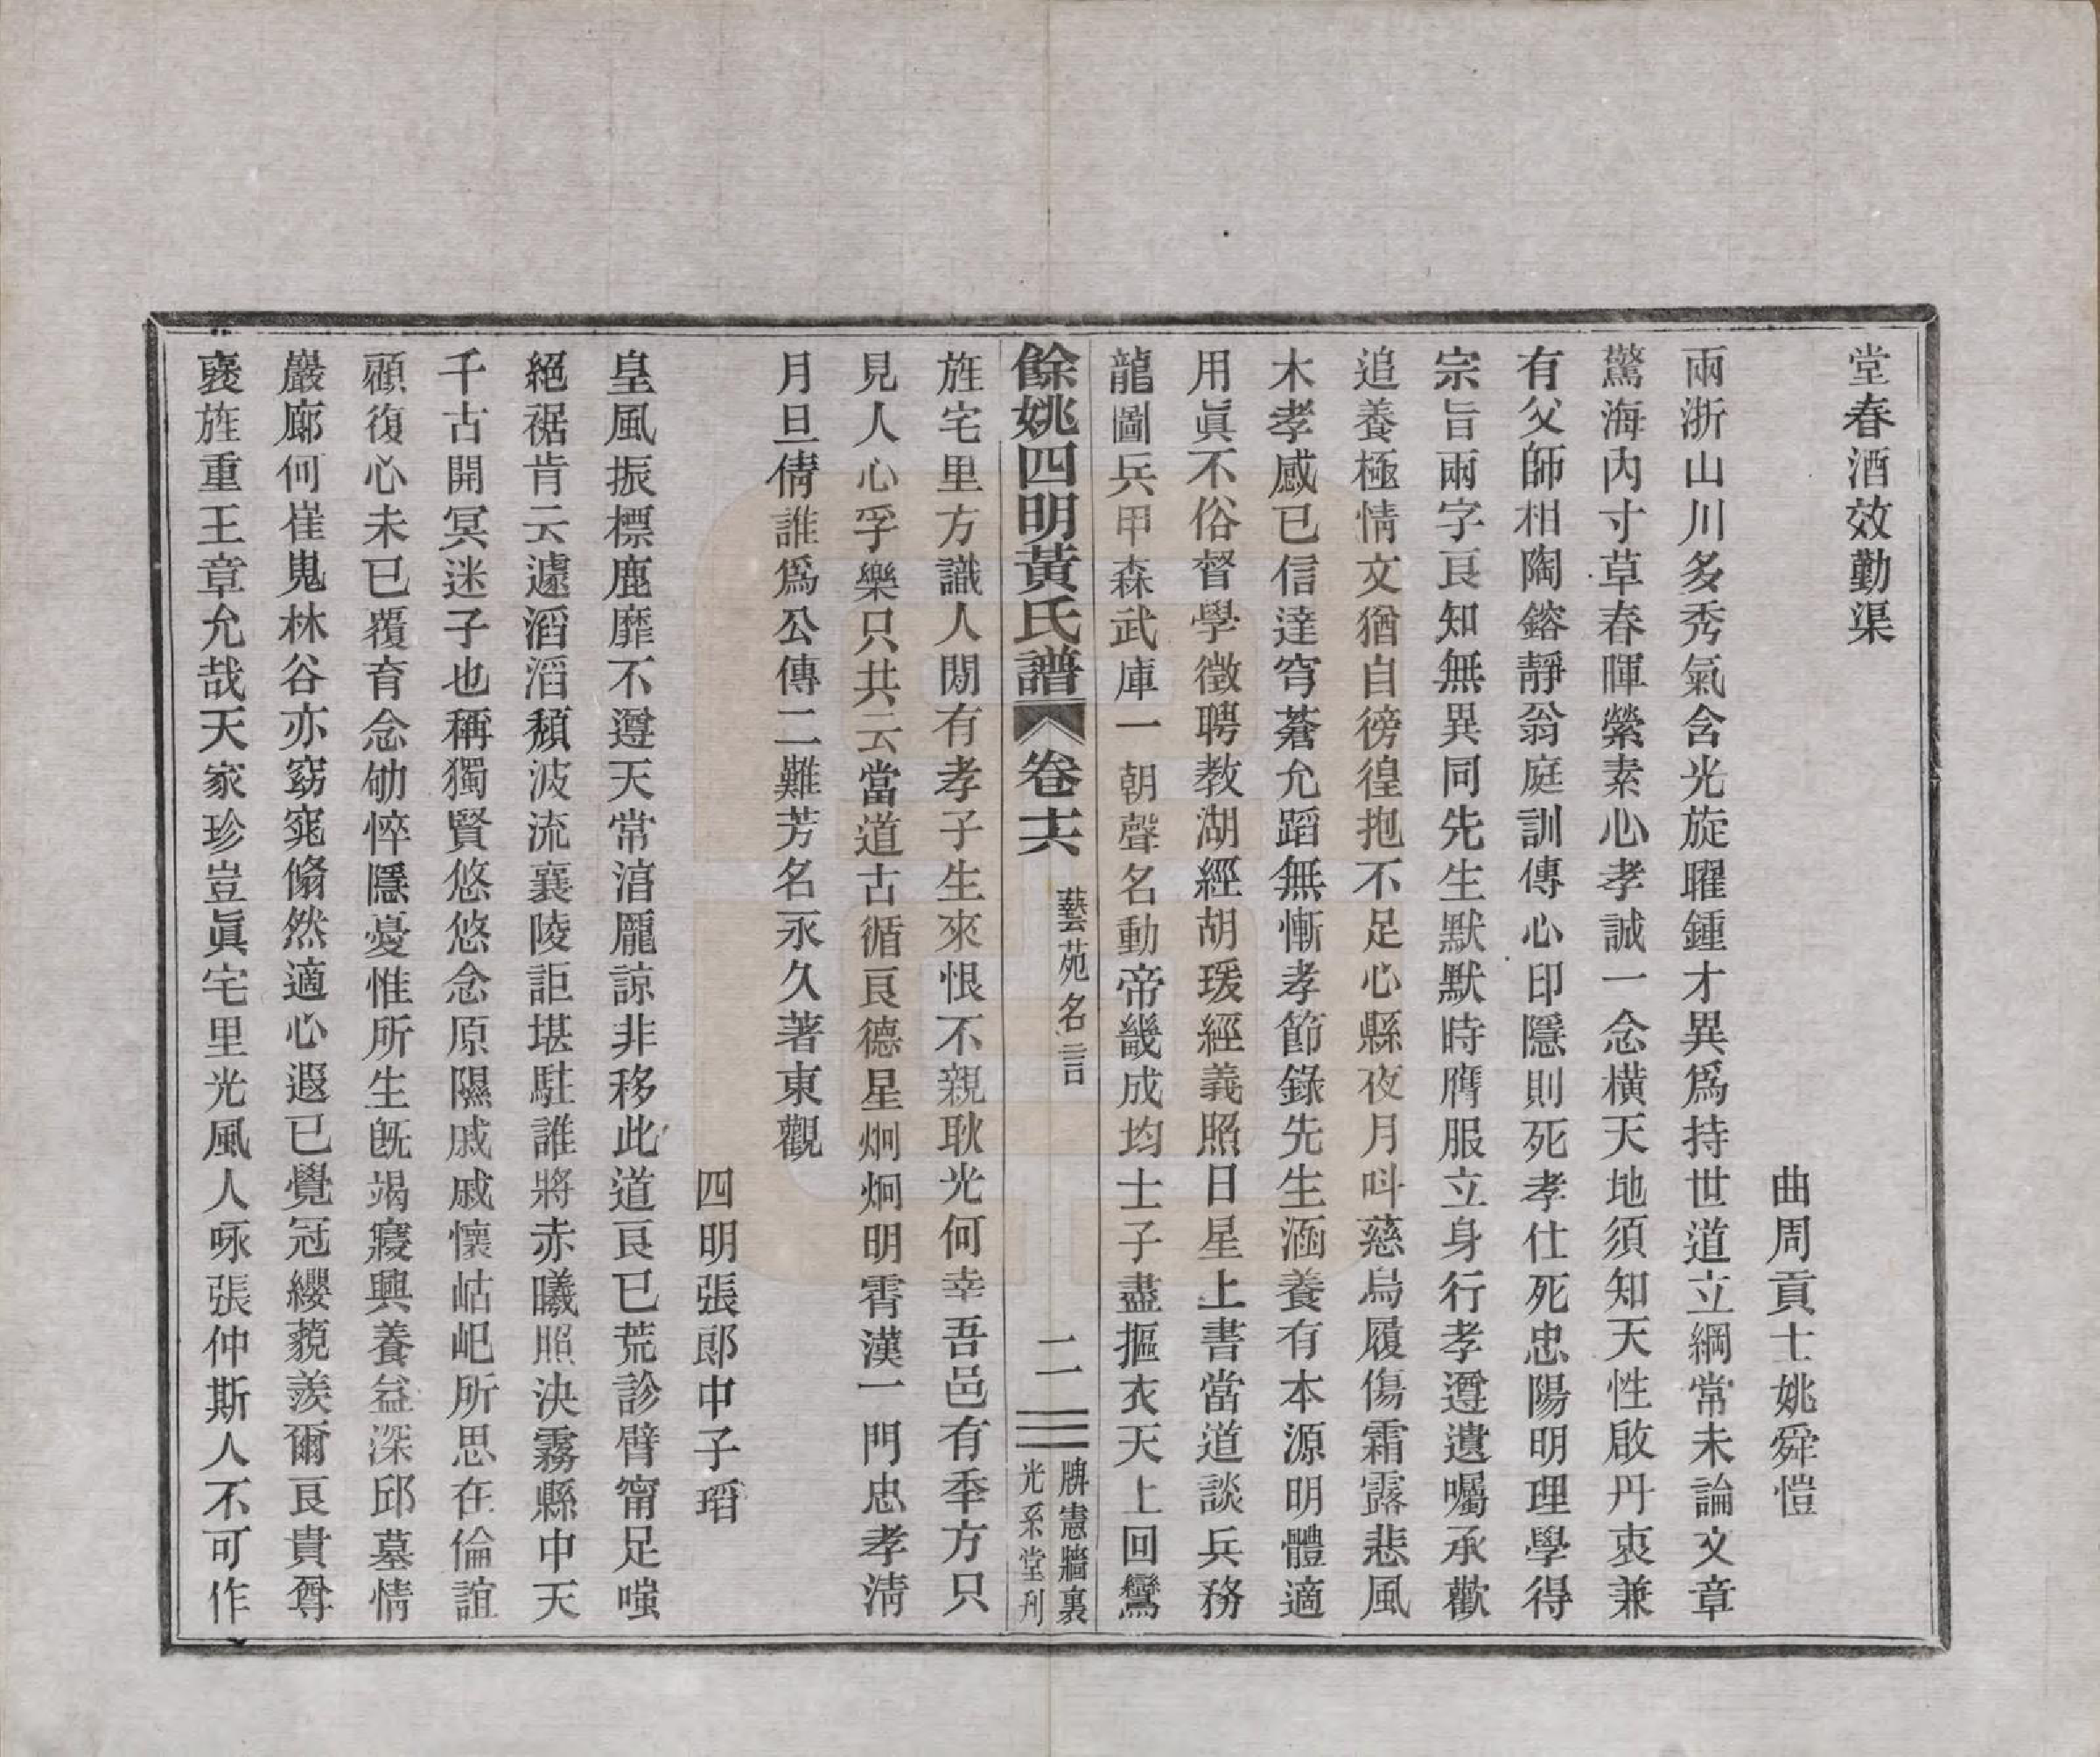 堂春酒效勤渠
曲周貢士姚舜愷
兩浙山川多秀氣含光旋曜鍾才異爲持世道立綱常未論文章
驚海內寸草春暉縈素心孝誠一念橫天地須知天性啟丹衷兼
有父師相陶鎔靜翁庭訓傳心印隱則死孝仕死忠陽明理學得
宗旨兩字良知無異同先生默默時膺服立身行孝遵遺囑承歡
追養極情文猶自徬徨抱不足心縣夜月叫慈烏履傷霜露悲風
木孝感已信達穹蒼允蹈無慚孝節錄先生涵養有本源明體適
用眞不俗督學徵聘教湖經胡瑗經義照日星上書當道談兵務
龍圖兵甲森武庫一朝聲名動帝畿成均士子盡摳衣天上回鸞
餘姚四明黃氏譜 卷十六 藝苑名言 二 牓憲牆裏 光系堂刊
旌宅里方識人閒有孝子生來恨不親耿光何幸吾邑有季方只
見人心孚樂只共云當道古循良德星炯炯明霄漢一門忠孝淸
月旦倩誰爲公傳二難芳名永久著東觀
四明張郎中子瑫
皇風振標鹿靡不遵天常涽龐諒非移此道良已荒診臂甯足嗤
絕裾肯云遽滔滔頹波流襄陵詎堪駐誰將赤曦照決霧縣中天
千古開冥迷子也稱獨賢悠悠念原隰戚戚懷岵屺所思在倫誼
顧復心未已覆育念劬悴隱憂惟所生旣竭寢興養益深邱墓情
巖廊何崔嵬林谷亦窈窕翛然適心遐已覺冠纓藐羨爾良貴尊
襃旌重王章允哉天家珍豈眞宅里光風人咏張仲斯人不可作